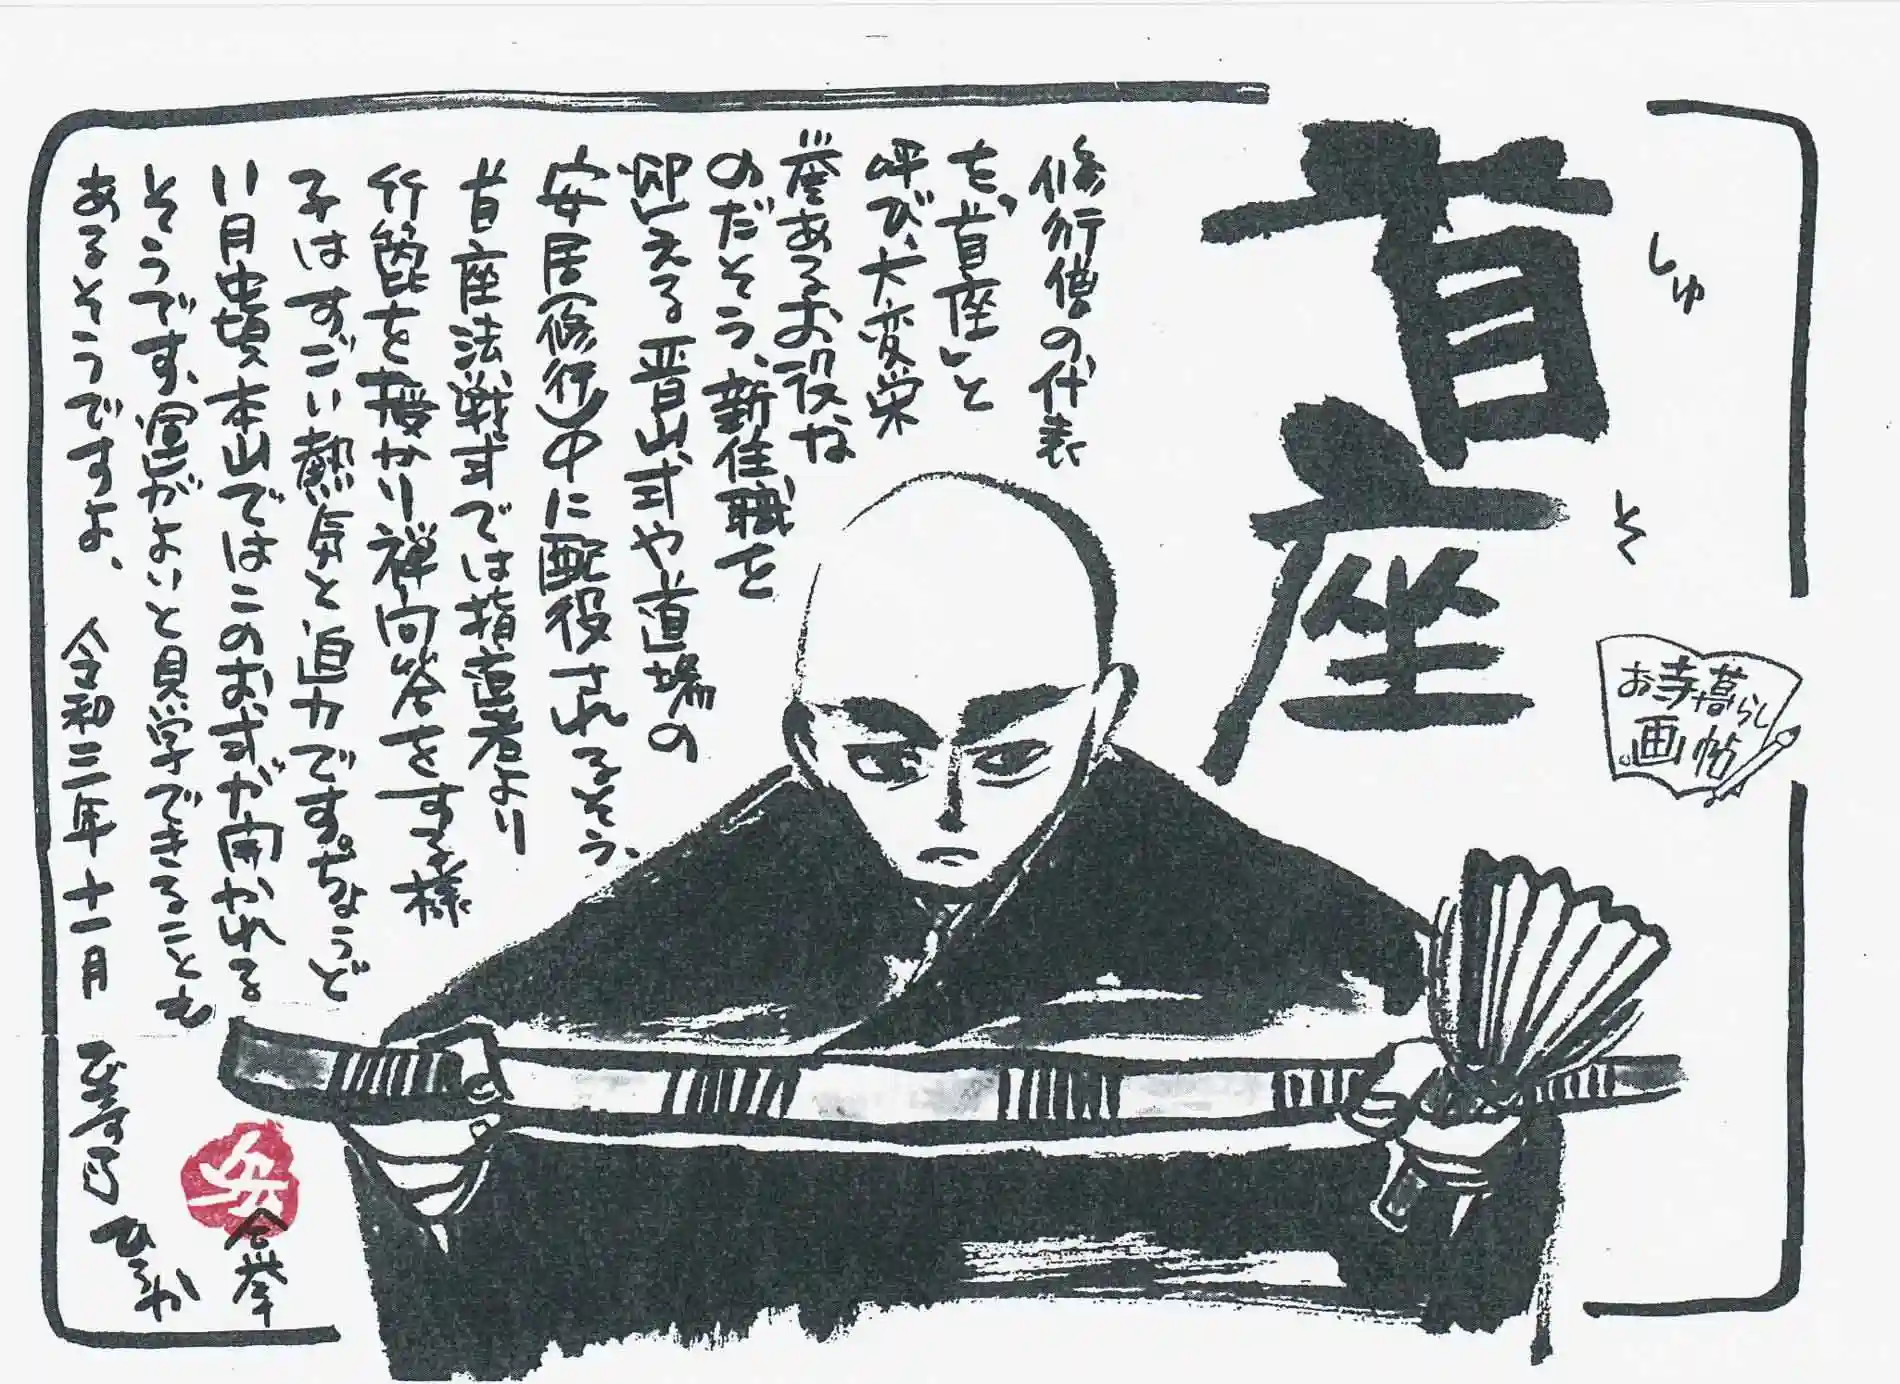 首座
しゅ
そ
お寺暮らし
画帖
修行僧の代表
を、「首座」と
呼び、大変栄
誉あるお役な
のだそう、新住職を
迎える晋山式や道場の
安居(修行)中に配役されるそう、
首座法戦式では指導者より
竹篦を授かり禅問答をする様
子はすごい熱気と迫力です。ちょうど
11月中頃本山ではこのお式が開かれる
そうです、運がよいと見学できることも
あるそうですよ、 令和三年十一月
ひるか
合掌